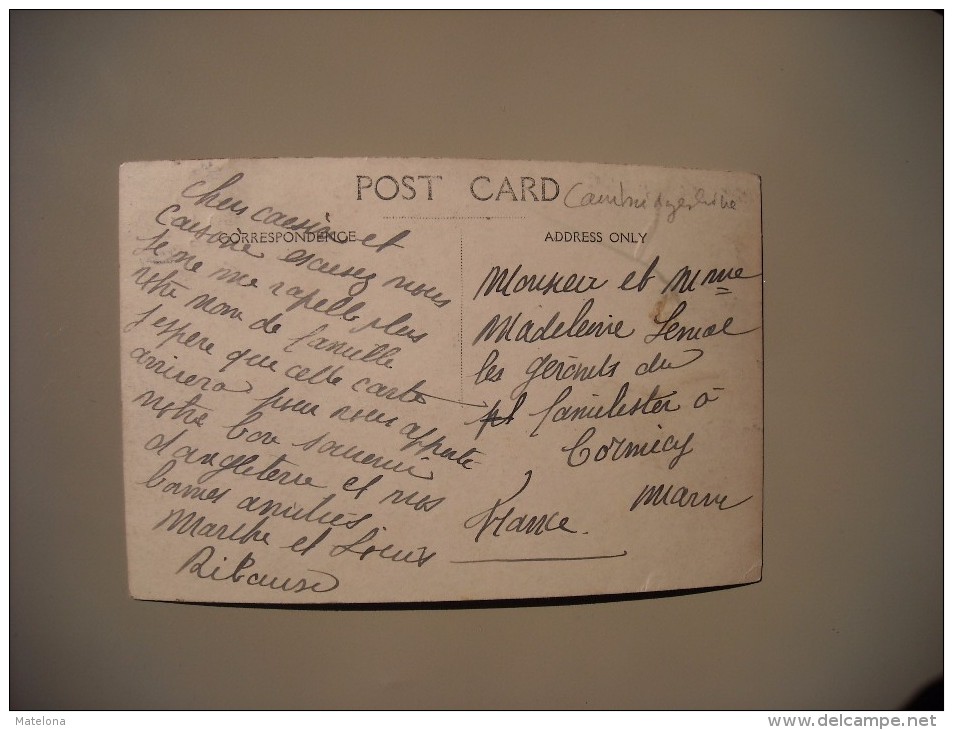 POST CARD
Cambridgeshire
CORRESPONDENCE
ADDRESS ONLY
cher cousin et
cousine excusez nous
Je ne me rapelle plus
votre nom de famille
J'espere que cette carte
arrivera pour vous apporte
notre bon souvenir
d'angleterre et nos
bonnes amitiés
Marthe et Louis
Monsieur et Mme
Madeleine
les gérants du
familister à
Cormicy
Marne
France.
Matelona
www.delcampe.net